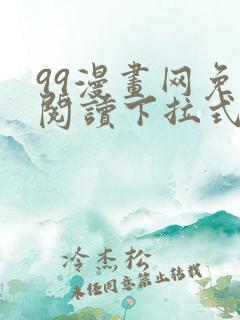 99漫畫网免
閱讀下拉式
冷杰松
未经同意禁止转载